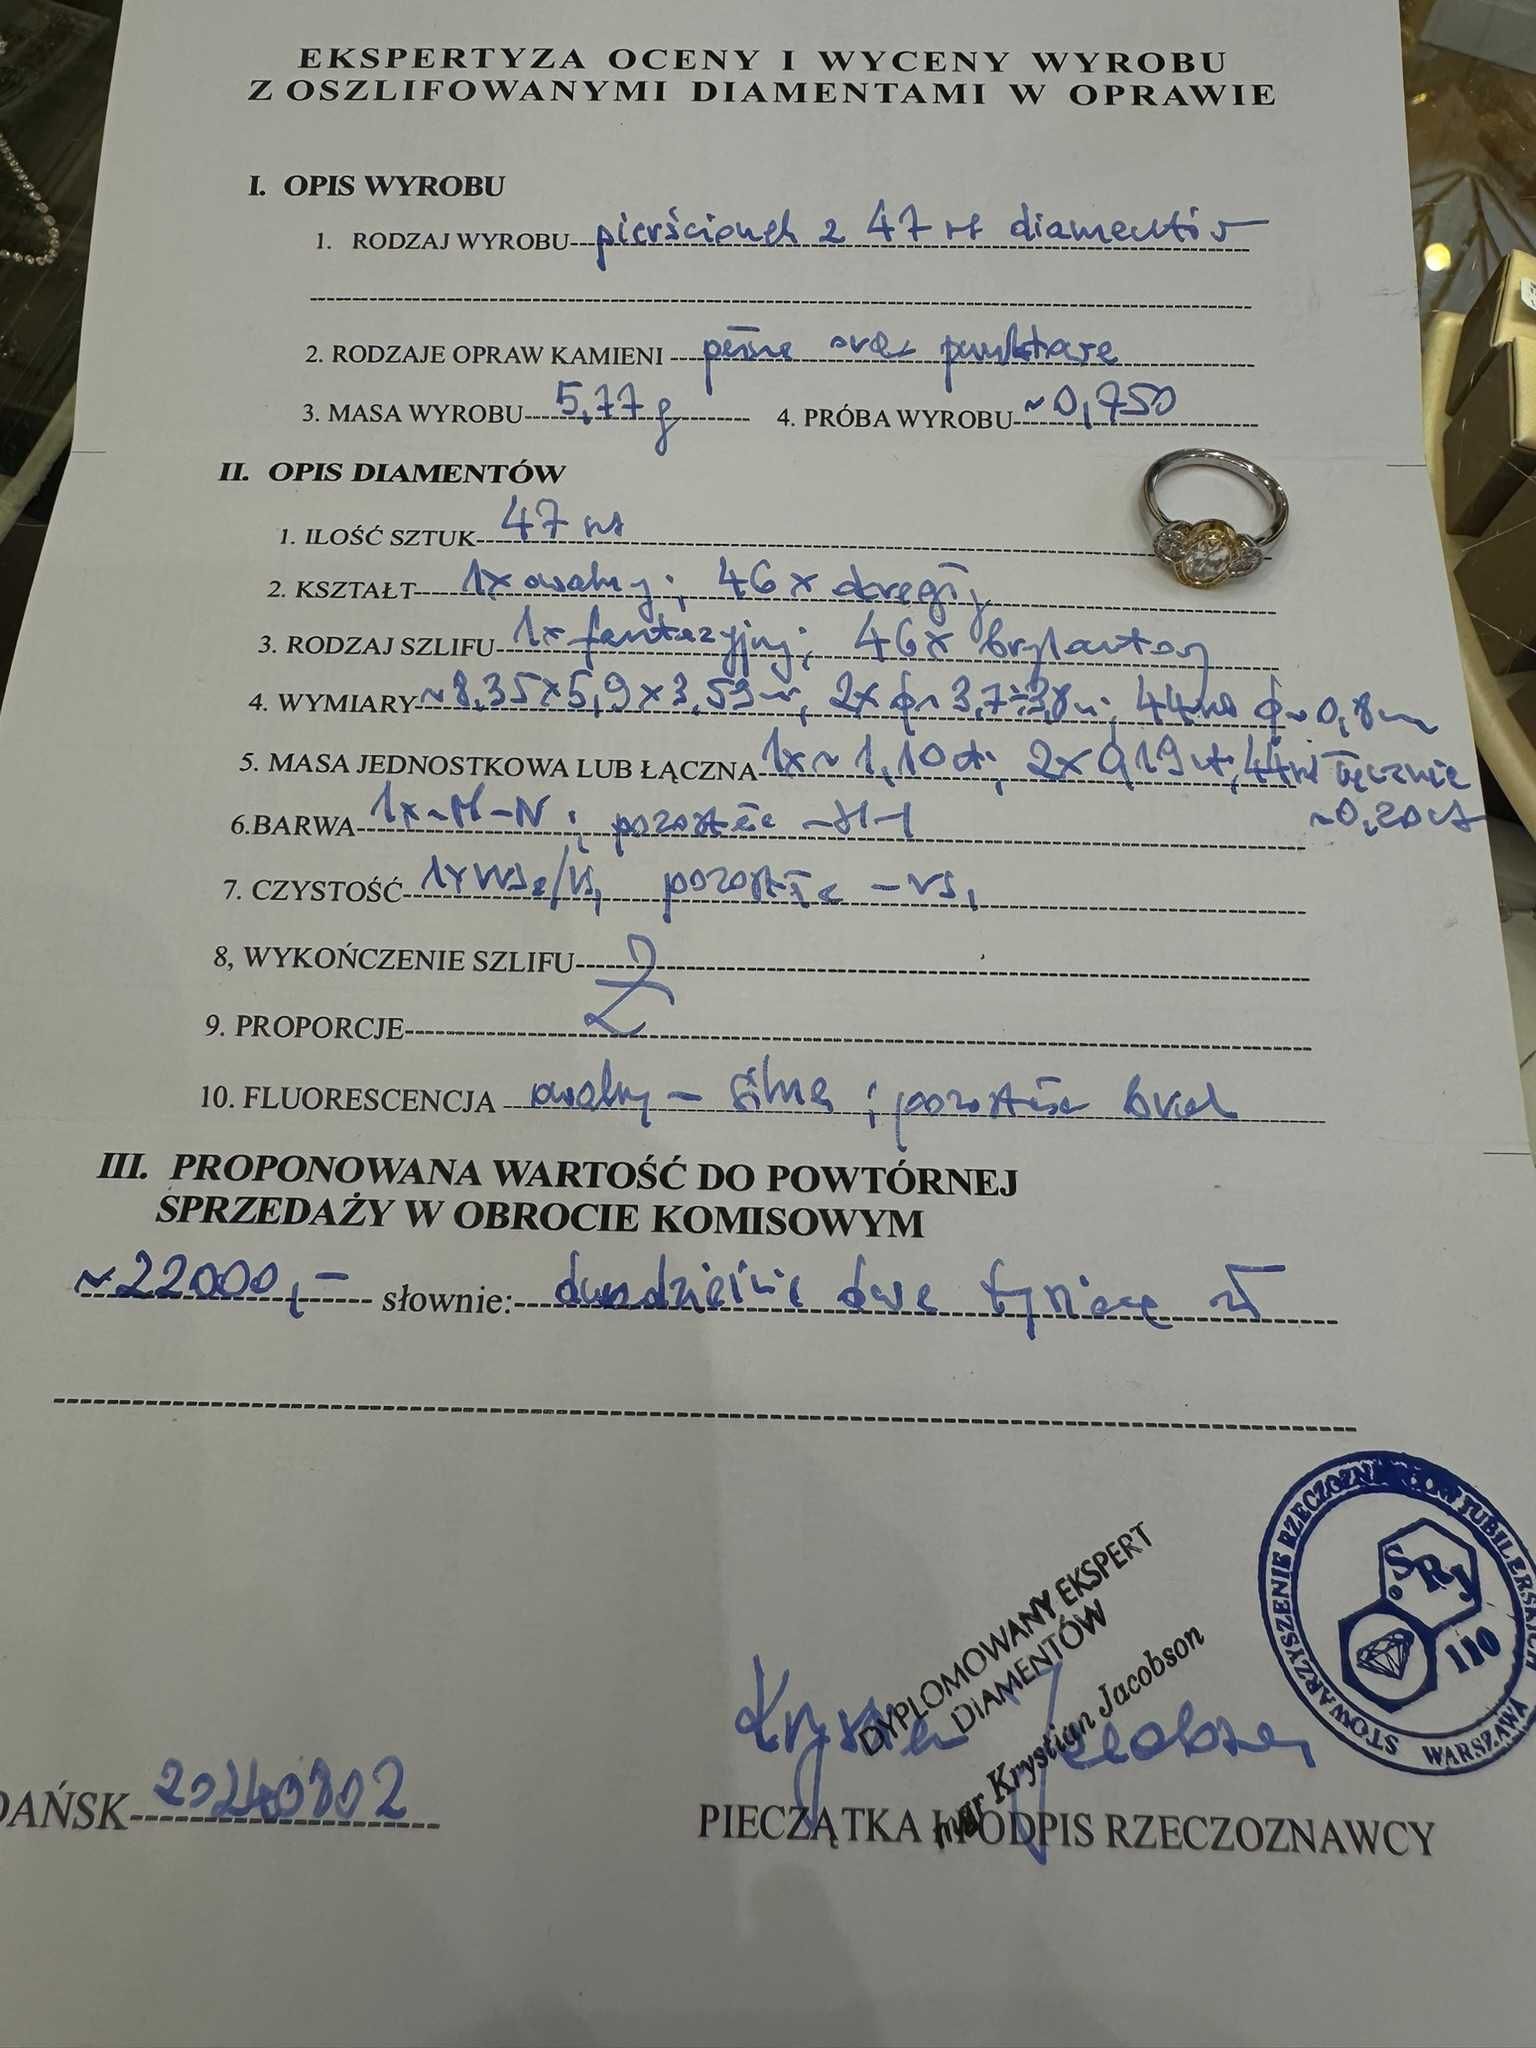 EKSPERTYZA OCENY I WYCENY WYROBU
Z OSZLIFOWANYMI DIAMENTAMI W OPRAWIE
I. OPIS WYROBU
1. RODZAJ WYROBU pierścionek z 47 szt diamentów
2. RODZAJE OPRAW KAMIENI pełne oraz punktowe
3. MASA WYROBU 5,77 g 4. PRÓBA WYROBU ~0,750
II. OPIS DIAMENTÓW
1. ILOŚĆ SZTUK 47 szt
2. KSZTAŁT 1x owalny; 46 x okrągły
3. RODZAJ SZLIFU 1x fantazyjny; 46x brylantowy
4. WYMIARY ~8,35x5,9x3,59 m, 2x ϕ~ 3,7÷3,8 m; 44 szt ϕ~0,8 m
5. MASA JEDNOSTKOWA LUB ŁĄCZNA 1x~1,10 ct; 2x0,19 ct; 44 szt łącznie
~0,20 ct
6.BARWA 1x~M-N; pozostałe -H-I
7. CZYSTOŚĆ 1xVVS2/VS1 pozostałe -VS1
8, WYKOŃCZENIE SZLIFU
9. PROPORCJE
10. FLUORESCENCJA owalny - silna; pozostałe brak
III. PROPONOWANA WARTOŚĆ DO POWTÓRNEJ
SPRZEDAŻY W OBROCIE KOMISOWYM
~22000,- słownie: dwadzieścia dwa tysiące zł
DYPLOMOWANY EKSPERT
DIAMENTÓW
mgr Krystian Jacobson
Krystian Jacobson
STOWARZYSZENIE RZECZOZNAWCÓW JUBILERSKICH
WARSZAWA
SRJ
110
DAŃSK 20240802
PIECZĄTKA I PODPIS RZECZOZNAWCY